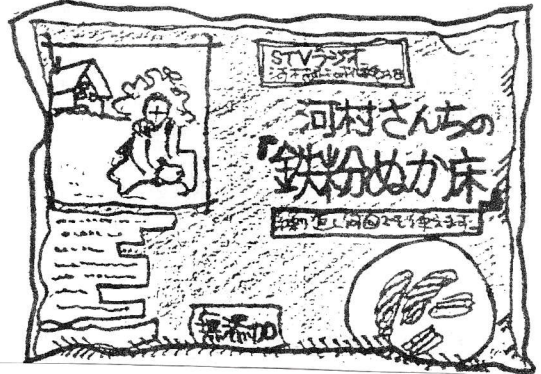 STVラジオ
河村さんちの
『鉄粉ぬか床』
繰り返し何回でも使えます。
無添加